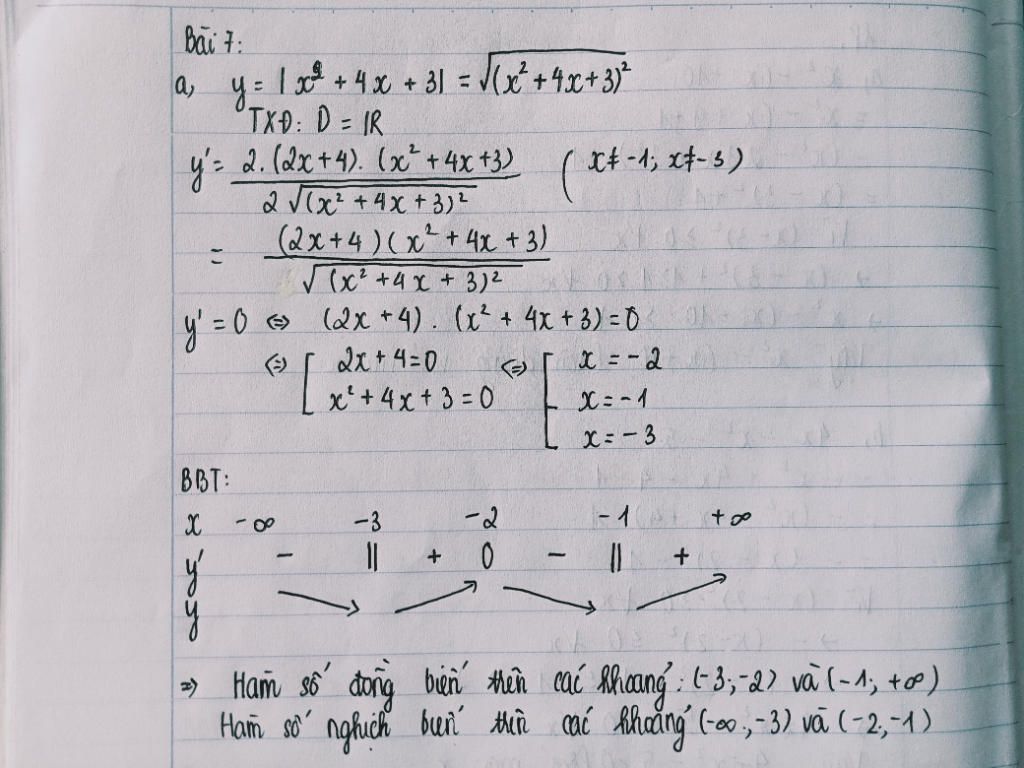 Bài 7:
a, y = |x² + 4x + 3| = √(x² + 4x + 3)²
TXĐ: D = ℝ
y' = 2.(2x+4).(x² + 4x + 3) / 2√(x² + 4x + 3)² ( x ≠ -1; x ≠ -3 )
= (2x+4)(x² + 4x + 3) / √(x² + 4x + 3)²
y' = 0 ⇔ (2x + 4) . (x² + 4x + 3) = 0
⇔ [ 2x + 4 = 0 ⇔ [ x = -2
x² + 4x + 3 = 0 x = -1
x = -3
BBT:
x -∞ -3 -2 -1 +∞
y' - || + 0 - || +
y ↘ ↗ ↘ ↗
⇒ Hàm số đồng biến trên các khoảng: (-3; -2) và (-1; +∞)
Hàm số nghịch biến trên các khoảng (-∞; -3) và (-2; -1)